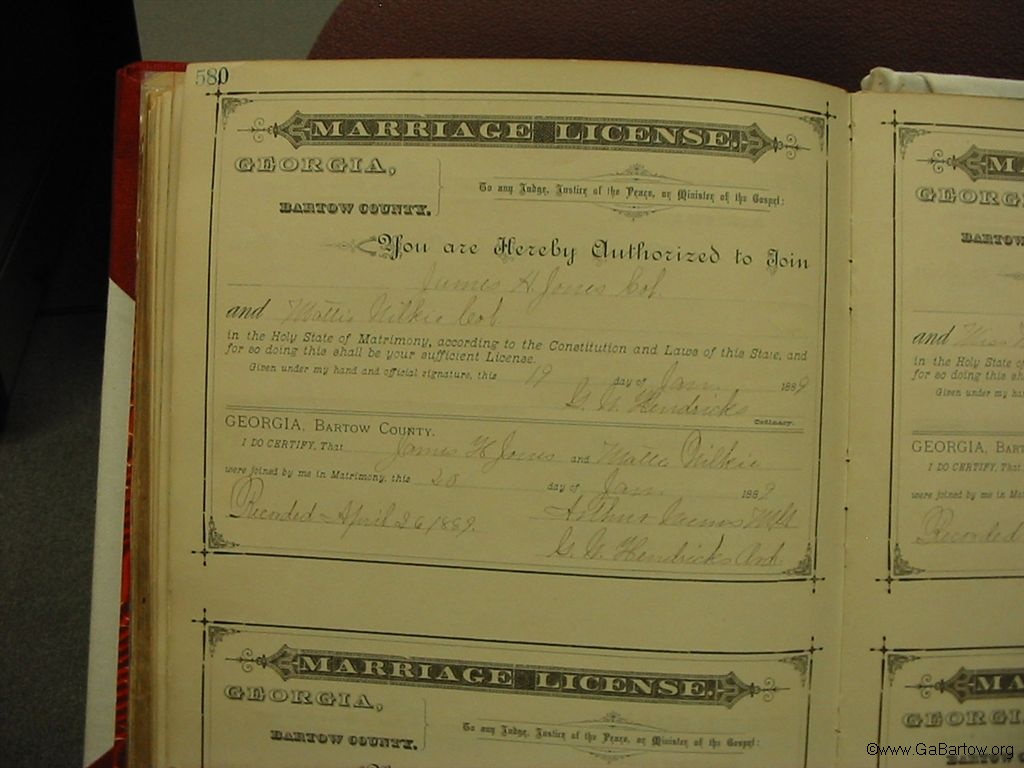 580
MARRIAGE LICENSE.
GEORGIA,
BARTOW COUNTY.
To any Judge, Justice of the Peace, or Minister of the Gospel:
You are Hereby Authorized to Join
James H Jones Col.
and Mattie Wilkie Col
in the Holy State of Matrimony, according to the Constitution and Laws of this State, and
for so doing this shall be your sufficient License.
Given under my hand and official signature, this 19 day of Jan 1889
G. W. Hendricks
Ordinary.
GEORGIA, BARTOW COUNTY.
I DO CERTIFY, That James H Jones and Mattie Wilkie
were joined by me in Matrimony, this 20 day of Jan. 1889
Recorded April 26 1889. Arthur
G. W. Hendricks Ord.
MARRIAGE LICENSE.
GEORGIA,
BARTOW COUNTY.
To any Judge, Justice of the Peace, or Minister of the Gospel:
MA
GEORG
BARTOW
and Miss
in the Holy State of
for so doing this sh
Given under my han
GEORGIA, BART
I DO CERTIFY, That
were joined by me in Mat
Recorded
MA
GEORG
BARTOW
©www.GaBartow.org